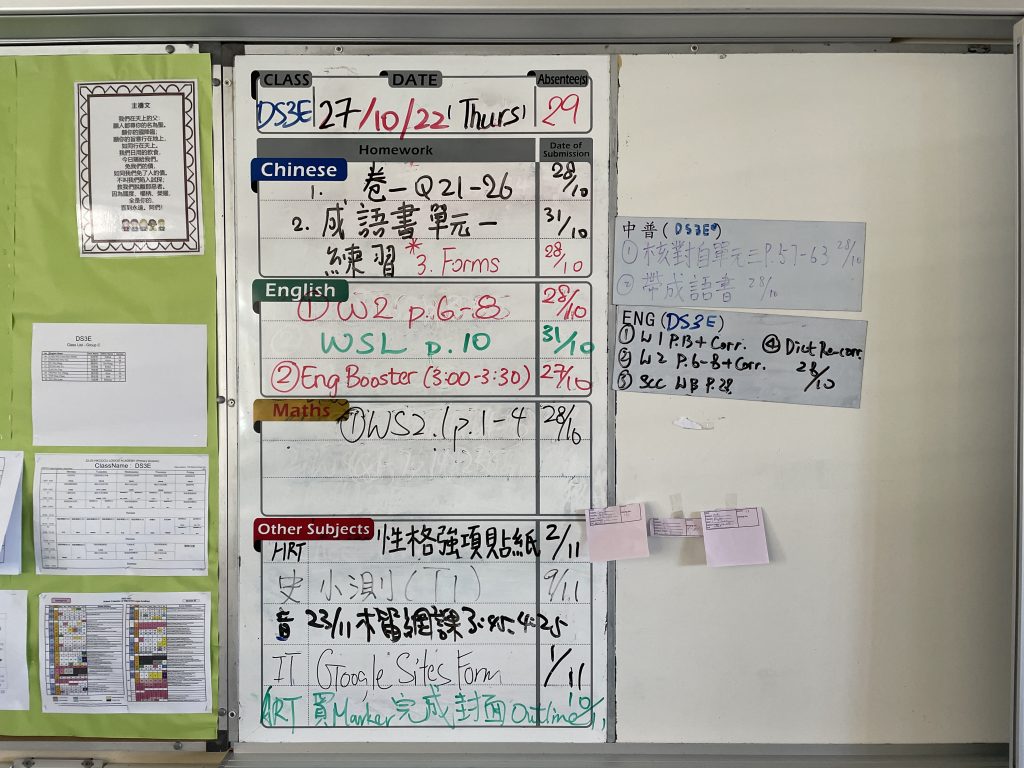 主禱文
我們在天上的父:
願人都尊你的名為聖。
願你的國降臨;
願你的旨意行在地上,
如同行在天上。
我們日用的飲食,
今日賜給我們。
免我們的債,
如同我們免了人的債。
不叫我們陷入試探;
救我們脫離那惡者。
因為國度、權柄、榮耀,
全是你的,
直到永遠。阿們!
DS3E
Class List - Group E
ClassName : DS3E
CLASS DATE Absentee(s)
DS3E 27/10/22 (Thurs) 29
Homework Date of Submission
Chinese
1. 卷一 Q21-26 28/10
2. 成語書單元一 31/10
練習 *3. Forms 28/10
English
① W2 p.6-8 28/10
WSL p.10 31/10
② Eng Booster (3:00-3:30) 27/10
Maths
① WS2.1 p.1-4 28/10
Other Subjects
ART 性格強項貼紙 2/11
史 小測(T1) 9/11
音 23/11 網課 3:45-4:25
IT Google Sites Form 1/11
ART 買Marker 完成封面 Outline 10/11
中普(DS3E)
① 核對自單元三P.57-63 28/10
② 帶成語書 28/10
ENG (DS3E)
① W1 P.13 + Corr. ④ Dict Re-corr.
② W2 P.6-8 + Corr. 28/10
③ SCC WB P.28